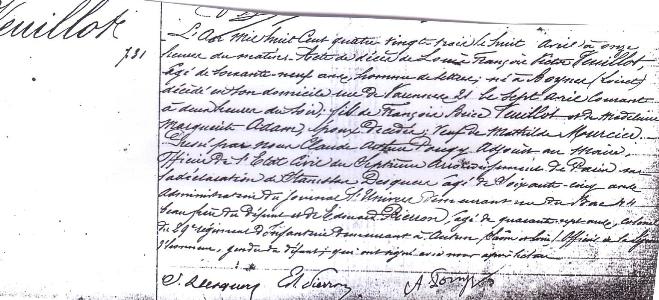 Veuillot
731
L'an mil huit cent quatre vingt trois le huit avril à onze
heures du matin. Acte de décès de Louis François Victor Veuillot
âgé de soixante neuf ans, homme de lettres; né à Boynes (Loiret)
décédé en son domicile rue de Varennes 21 le sept avril courant
à deux heures du soir; fils de François Brice Veuillot et de Madeleine
Marguerite Adam, époux décédés; Veuf de Mathilde Murcier.
Dressé par nous Claude Arthur adjoint au maire,
Officier de l'Etat Civil du septième arrondissement de Paris sur
la déclaration de Stanislas âgé de soixante cinq ans
administrateur du journal l'Univers demeurant rue du Bac 44
beau frère du défunt et de Edouard Pierron, âgé de quarante sept ans, colonel
du 29e régiment d'infanterie demeurant à Autun (Saône et Loire) Officier de la Légion
d'honneur, gendre du défunt; qui ont signé avec nous après lecture
Ed. Pierron